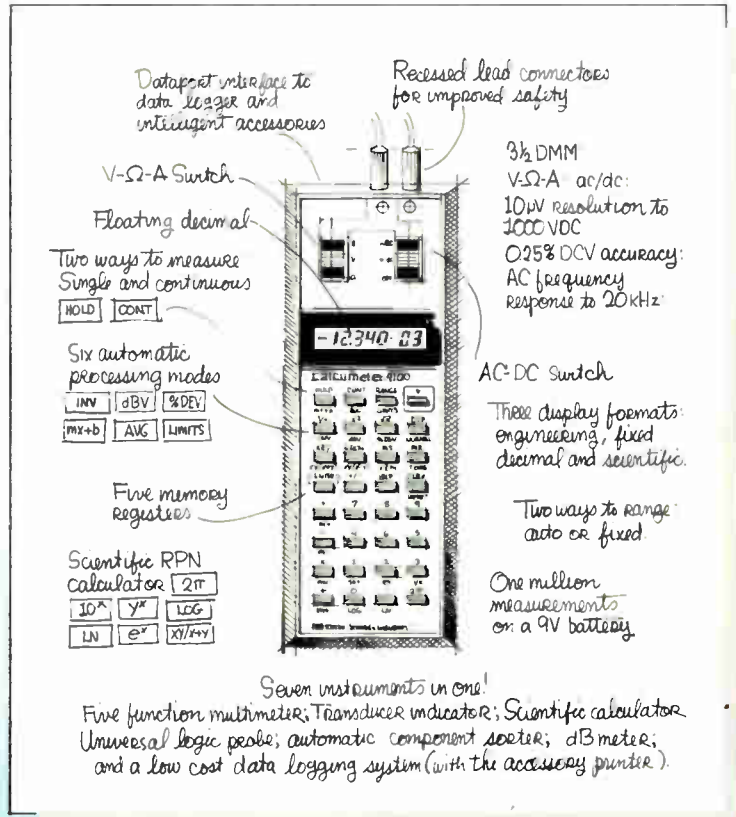 Dataport interface to
data logger and
intelligent accessories
Recessed lead connectors
for improved safety
V-Ω-A Switch
Floating decimal
Two ways to measure
Single and continuous
HOLD CONT
Six automatic
processing modes
INV dBV %DEV
mx+b AVG LIMITS
Five memory
registers
Scientific RPN
calculator 2π
10ˣ yˣ LOG
LN eˣ xy/x+y
3½ DMM
V-Ω-A ac/dc:
10µV resolution to
1000 VDC
0.25% DCV accuracy:
AC frequency
response to 20kHz
AC-DC Switch
Three display formats:
engineering, fixed
decimal and scientific.
Two ways to range:
auto or fixed.
One million
measurements
on a 9V battery
-12.340 03
Calcumeter 4100
HOLD CONT RANGE
Seven instruments in one!
Five function multimeter; Transducer indicator; Scientific calculator
Universal logic probe; automatic component sorter; dB meter;
and a low cost data logging system (with the accessory printer).